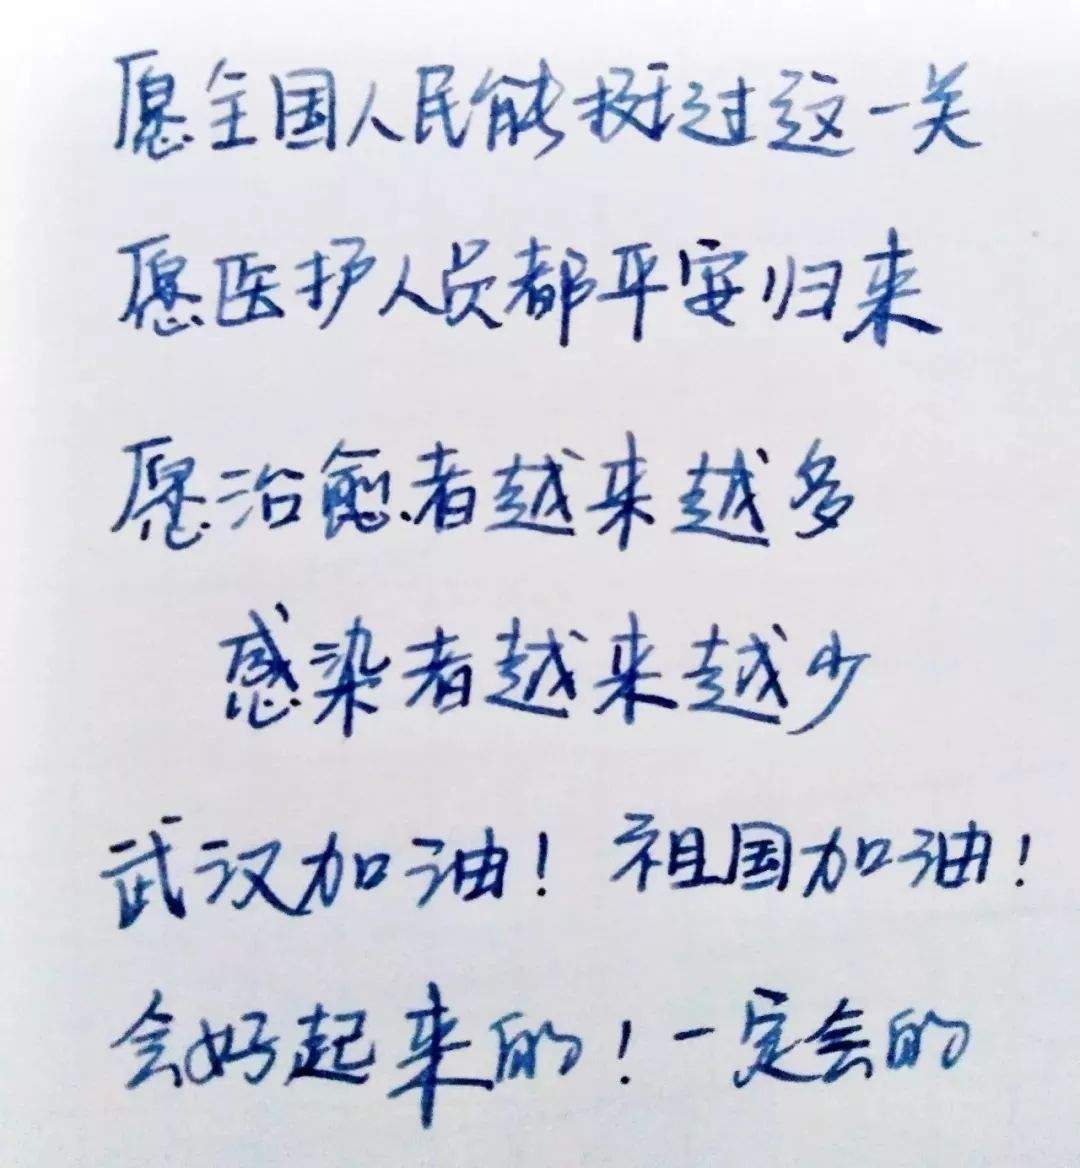 愿全国人民能挺过这一关
愿医护人员都平安归来
愿治愈者越来越多
感染者越来越少
武汉加油！祖国加油！
会好起来的！一定会的